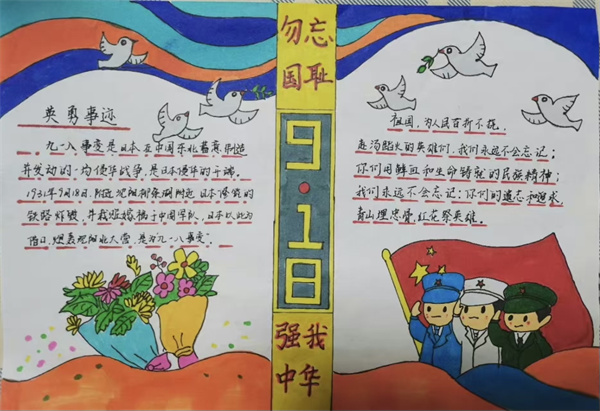 勿忘
国耻
9·18
强我
中华
英勇事迹
九一八事变是日本在中国东北蓄意制造
并发动的一场侵华战争,是日本侵华的开端。
1931年9月18日,
铁路炸毁,并栽赃嫁祸于中国军队,日本以此为
借口,炮轰沈阳北大营,是为“九一八事变”。
祖国,为人民百折不挠,
赴汤蹈火的英雄们,我们永远不会忘记;
你们用鲜血和生命铸就的民族精神;
我们永远不会忘记;你们的遗志和追求
青山埋忠骨,红花祭英雄。